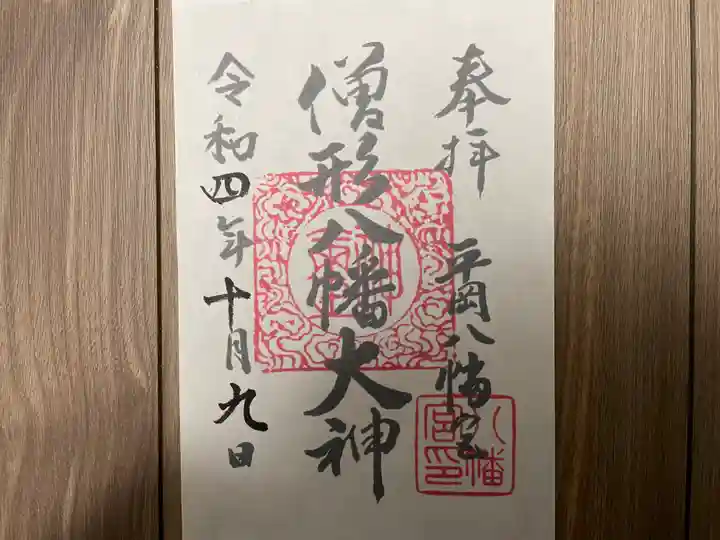 奉拝
平岡八幡宮
僧形八幡大神
令和四年十月九日
八幡
宮印